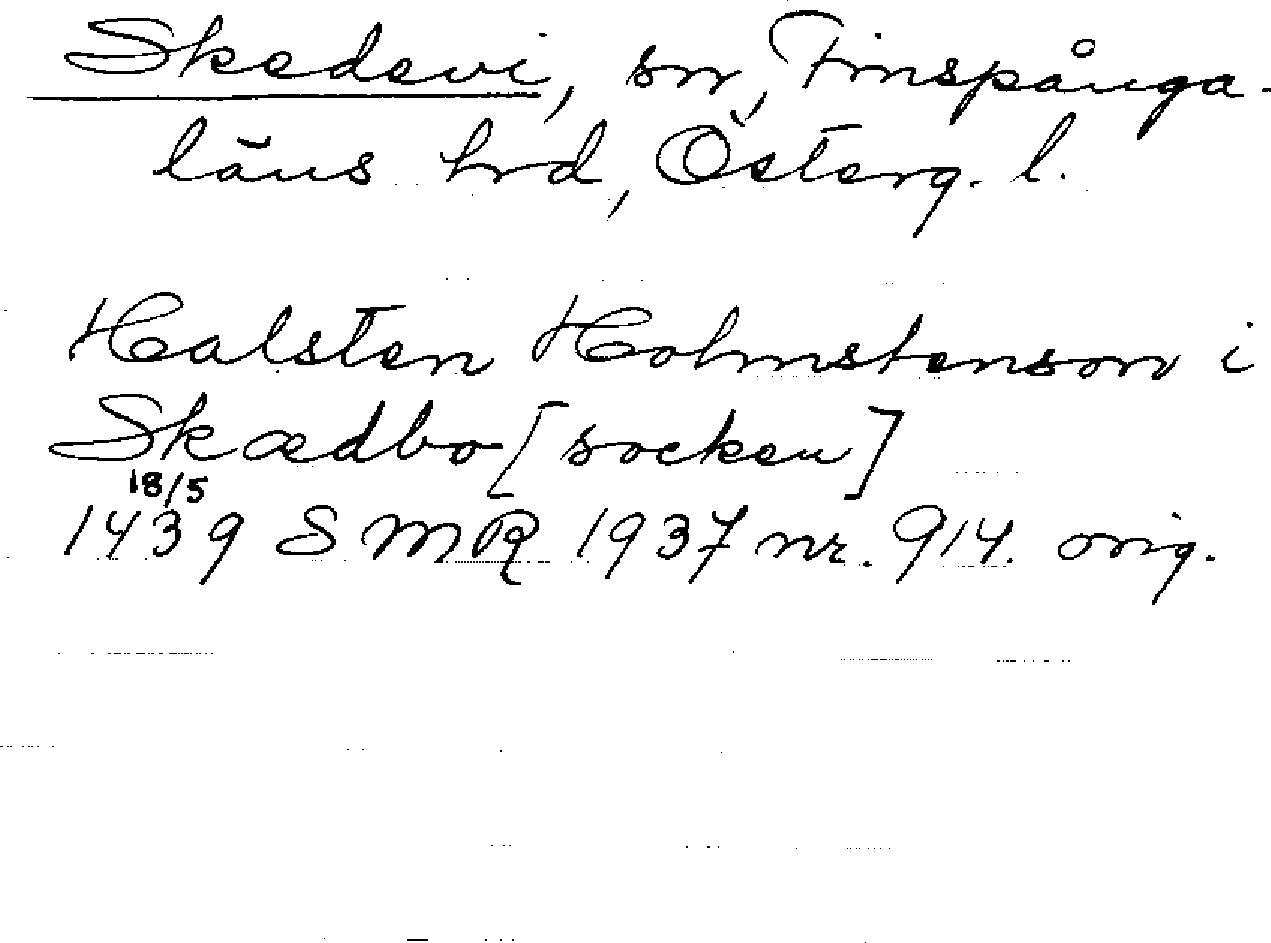 Skedevi, sn, Finspånga-
läns hrd, Österg. l.
Halsten Holmstenson i
Skædbo [socken]
18/5
1439 SMR 1937 nr. 914. orig.